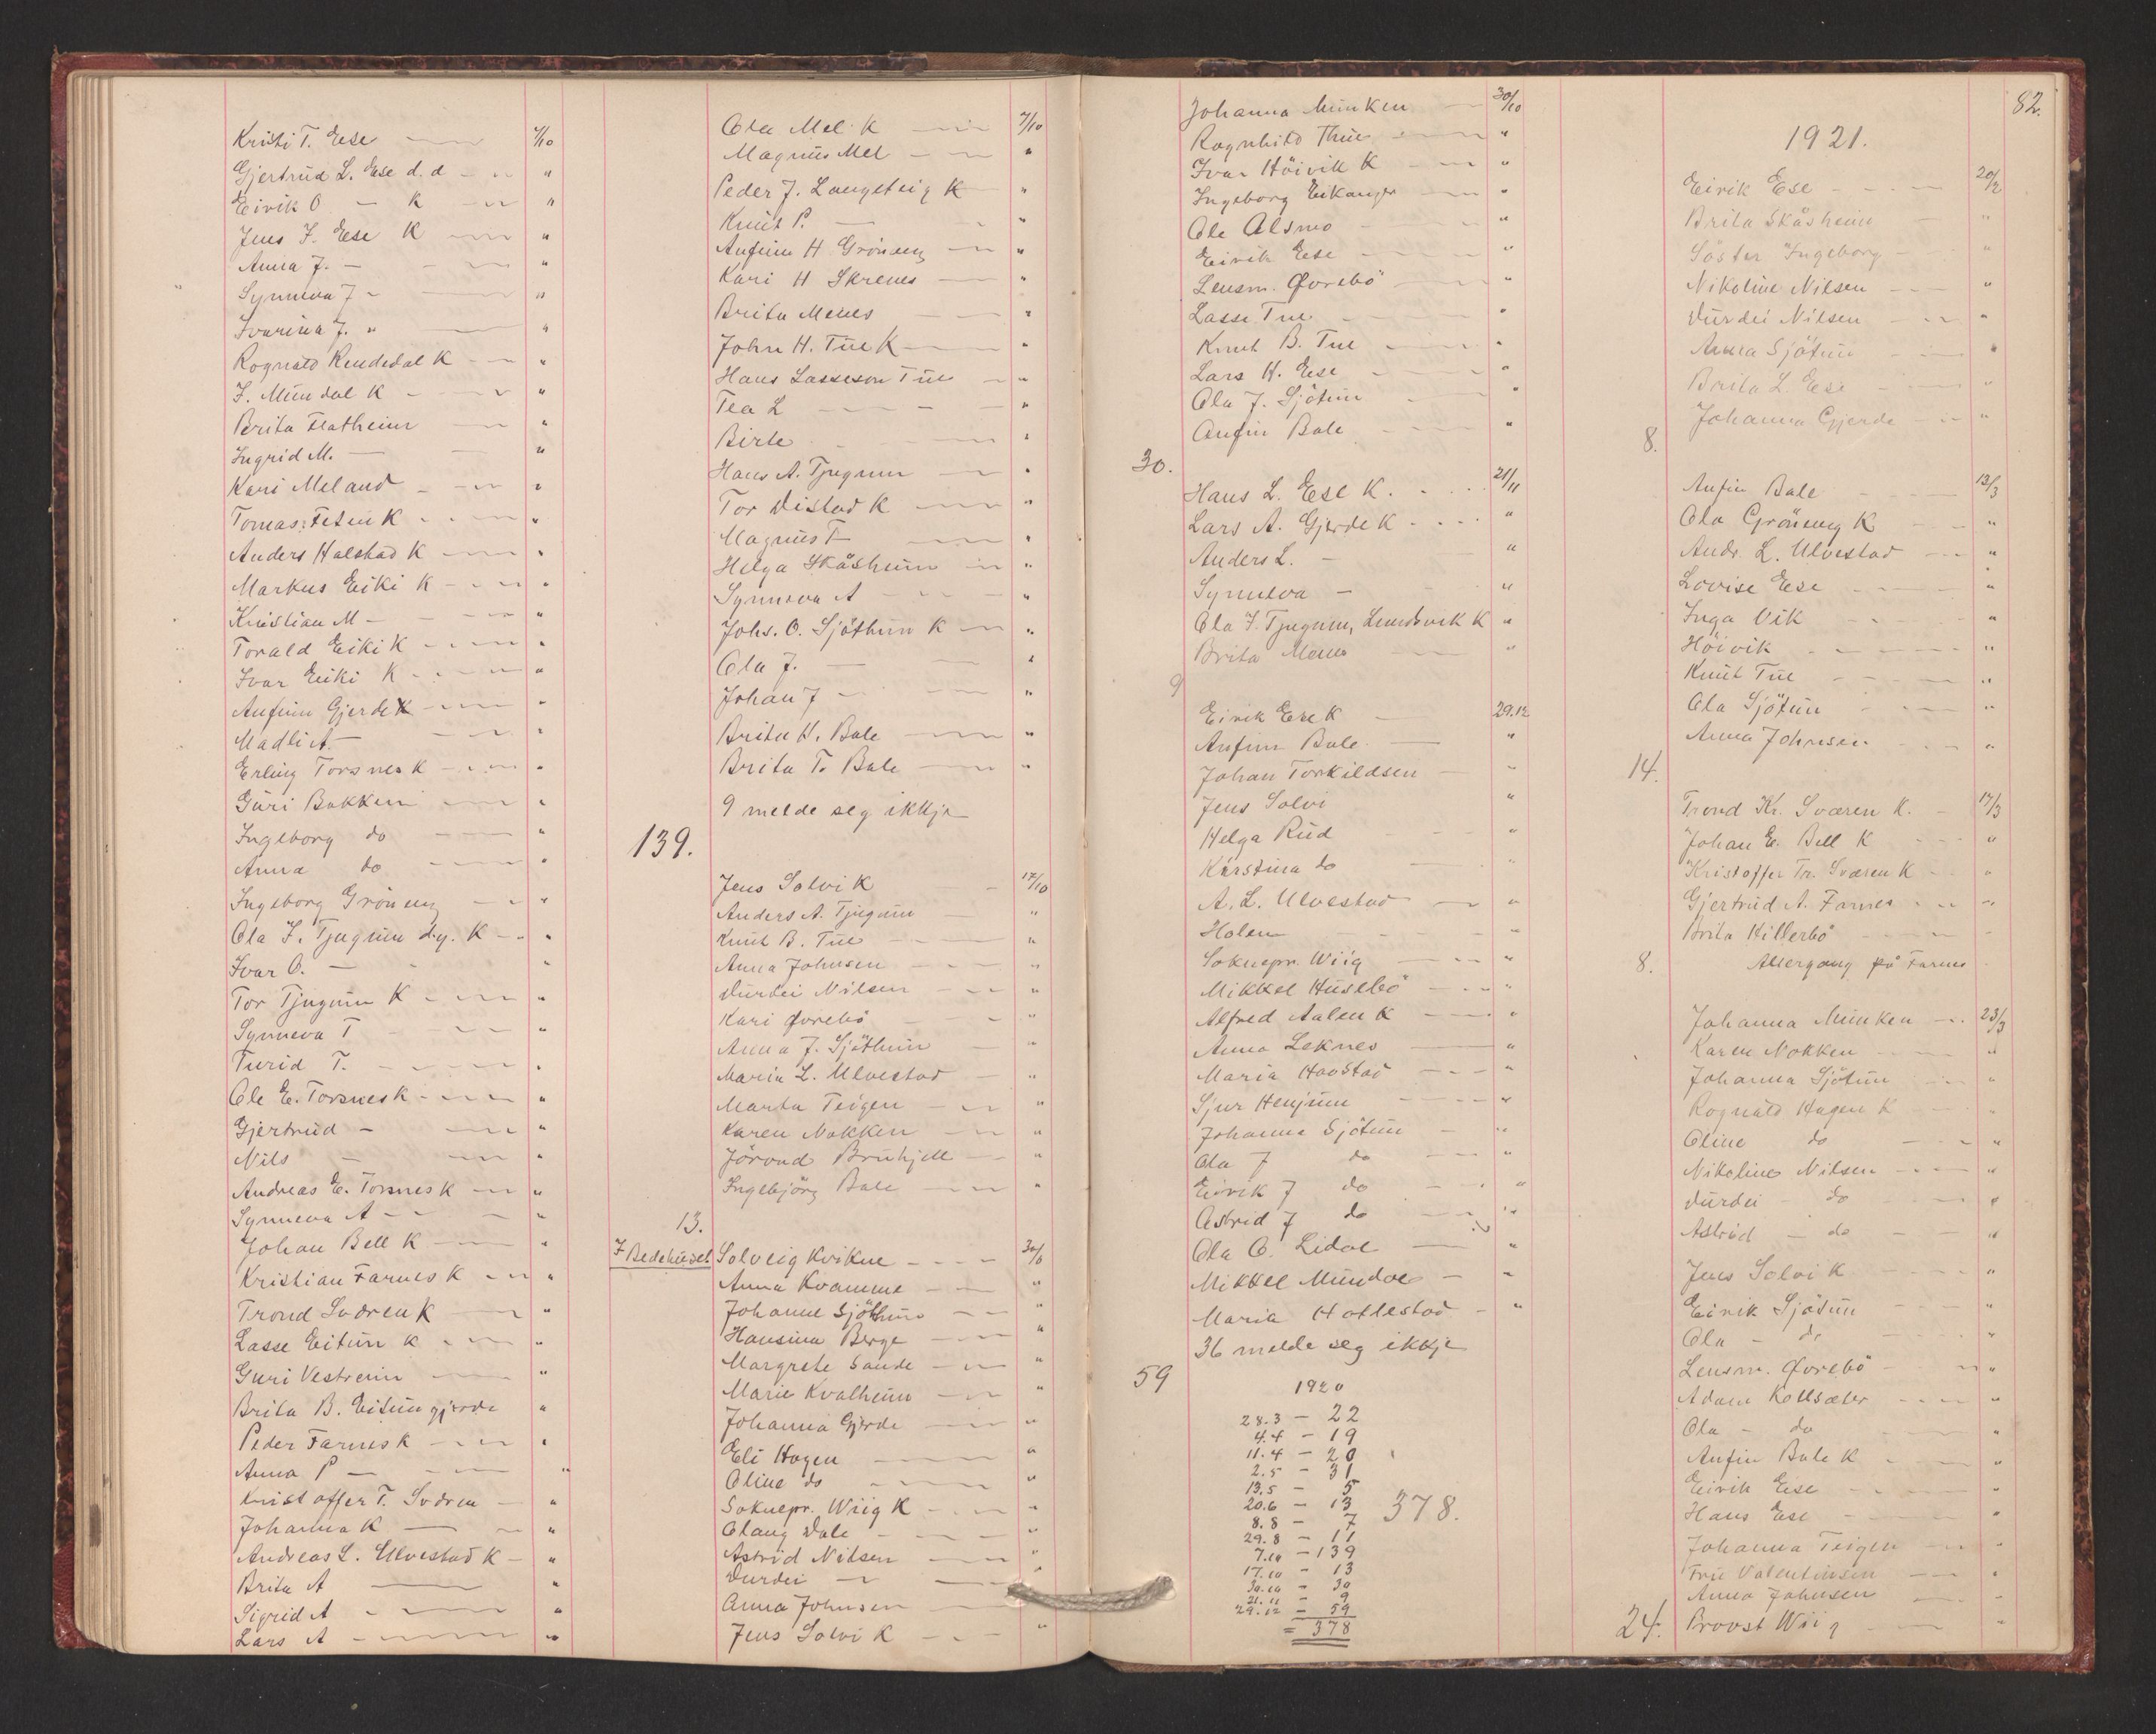 Kristi T. Ese 7/10
Gjertrud L. Ese d.d "
Eirik O — K "
Jens J. Ese K "
Anna J. — "
Synneva J — "
Ivarina J. " "
Rognald Rendedal K "
I. Mundal K "
Brita Flatheim "
Ingrid M. — "
Kari Meland "
Tomas: Feten K "
Anders Halstad K "
Markus Eiki K "
Kristian M — "
Torald Eiki K "
Ivar Eiki K "
Anfinn Gjerde K "
Madli A. — "
Erling Torsnes K "
Guri Bakken "
Ingeborg do "
Anna do "
Ingeborg Gröneng "
Ola I. Tjugum d.y. K "
Ivar O. — "
Tor Tjugum K "
Synneva T "
Turid T. "
Ole E. Torsnes K "
Gjertrud — "
Nils — "
Andreas E. Torsnes K "
Synneva A "
Johan Bell K "
Kristian Farnes K "
Trond Sværen K "
Lasse Eitun K "
Guri Vestreim "
Brita B. Eitungjerde "
Peder Farnes K "
Anna P — "
Kristoffer T. Sværen "
Johanna K — "
Andreas L. Ulvestad K "
Brita A "
Sigrid A "
Lars A "
Ola Mel K 7/10
Magnus Mel "
Peder J. Langeteig K "
Knut P. — "
Anfinn H Gröneng "
Kari H Skrenes "
Brita Menes "
John H. Tue K "
Hans Lasseson Tue "
Tea L "
Birte "
Hans A. Tjugum "
Tor Distad K "
Magnus T "
Helga Skåsheim "
Synneva A "
Johs. O. Sjöthun K "
Ola J. — "
Johan J — "
Brita K. Bale "
Brita T. Bale "
9 melde seg ikkje
139.
Jens Solvi K 17/10
Anders A. Tjugum "
Knut B. Tue "
Anna Johnsen "
Durdei Nilsen "
Kari Øvrebö "
Anna J. Sjöthun "
Maria L. Ulvestad "
Marta Teigen "
Karen Nokken "
Jörond Bruhjell "
Ingebjörg Bale "
13.
I Bedehuset Solveig Kvikne 30/10
Anna Kvamme "
Johanne Sjöthun "
Hansina Berge "
Margrete Sande "
Marie Kvalheim "
Johanna Gjerde "
Eli Hagen "
Oline do "
Soknepr. Wiig K "
Olaug Dale "
Astrid Nilsen "
Durdei — "
Anna Johnsen
Jens Solvi K "
Johanna Munken 30/10
Rognhild Thue "
Ivar Höivik K "
Ingeborg Eikanger "
Ole Alsmo "
Eirik Ese "
Lensm. Øvrebö "
Lasse Tue "
Knut B. Tue "
Lars H. Ese "
Ola J. Sjötun "
Anfin Bale "
30.
Hans L. Ese K. 21/11
Lars A. Gjerde K "
Anders L. — "
Synneva — "
Ola I. Tjugum, Lundevik K "
Brita Menes "
9
Eirik Ese K 29.12
Anfinn Bale "
Johan Torkildsen "
Jens Solvi "
Helga Rud "
Kirstina do "
A. L. Ulvestad "
Holen "
Soknepr. Wiig "
Mikkel Husebö "
Alfred Aalen K "
Anna Leknes "
Maria Hovstad "
Sjur Henjum "
Johanne Sjötun "
Ola J do "
Eirik J do "
Astrid J do "
Ola O. Lidal "
Mikkel Mundal "
Maria Hatlestad "
36 melde seg ikkje
59
1920
28.3 — 22
4.4 — 19
11.4 — 20
2.5 — 31
13.5 — 5
20.6 — 13
8.8 — 7
29.8 — 11
7.10 — 139
17.10 — 13
30.10 — 30
21.11 — 9
29.12 — 59
= 378
378.
82.
1921.
Eirik Ese 20/2
Brita Skåsheim "
Söster Ingeborg "
Nikoline Nilsen "
Durdei Nilsen "
Anna Sjötun "
Brita L. Ese "
Johanna Gjerde "
8.
Anfin Bale 13/3
Ola Gröneng K "
Andr. L. Ulvestad "
Lovise Ese "
Inga Vik "
Höivik "
Knut Tue "
Ola Sjötun "
Anna Johnsen "
14.
Trond Kr. Sværen K. 17/3
Johan E. Bell K "
Kristoffer Tr. Sværen K "
Gjertrud A. Farnes "
Brita Hillerbö "
8. Altergang på Farnes
Johanna Munken 23/3
Karen Nokken "
Johanna Sjötun "
Rognald Hagen K "
Oline do "
Nikoline Nilsen "
Durdei do "
Astrid — do "
Jens Solvi K "
Eirik Sjötun "
Ola — do "
Lensm. Øvrebö "
Adam Kollsæter "
Ola — do "
Anfin Bale K "
Eirik Ese "
Hans Ese "
Johanna Teigen "
Fru Valentinsen "
Anna Johnsen "
24. Provst Wiig "